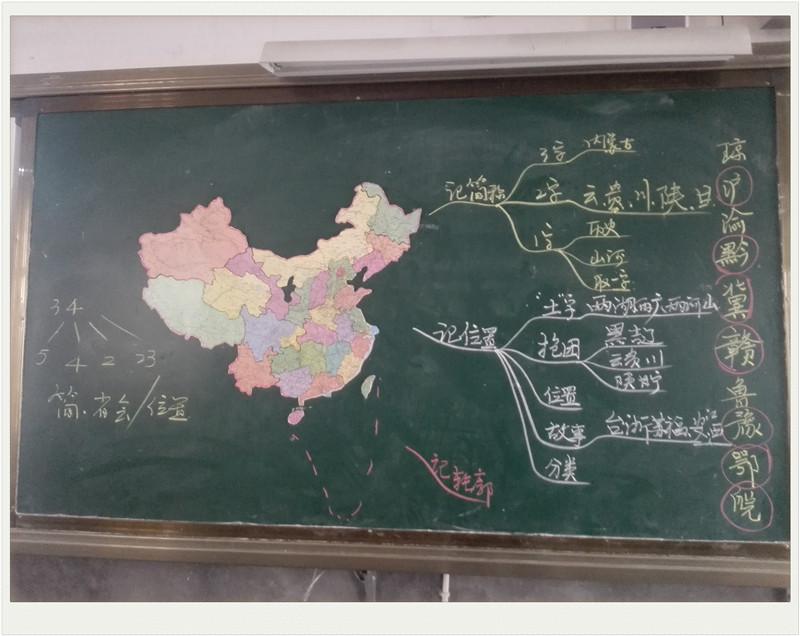 34
5 4 2 23
简.省会/位置
记简称
3字 内蒙古
2字 云贵.川.陕.甘
1字 历史
山河
取一字
记位置
"土"字 两湖两广两河山
抱团 黑吉辽
云贵川
陕甘宁
位置
故事
分类
记轮廓
琼
沪
渝
黔
冀
赣
鲁
豫
鄂
皖